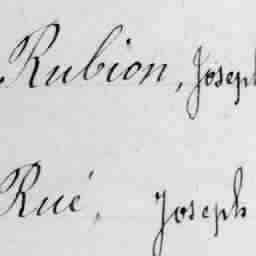 Rubion, Joseph
Rué, Joseph